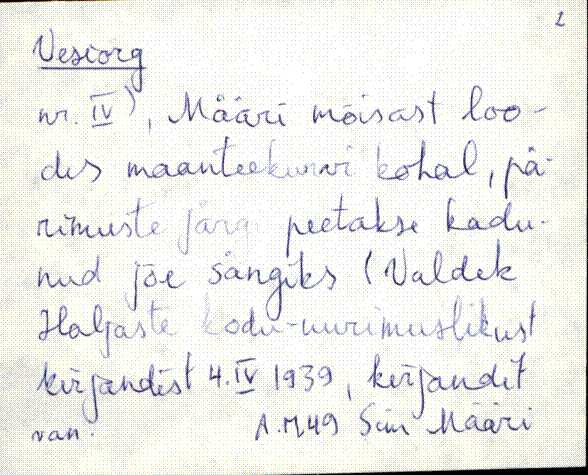 2
Vesiorg
nr. IV), Määri mõisast loo-
des maanteekurvi kohal, pä-
rimuste järgi peetakse kadu-
nud jõe sängiks (Valdek
Haljaste kodu-uurimuslikust
kirjandist 4.IV 1939, kirjandit
van. A.M,49 Siin Määri